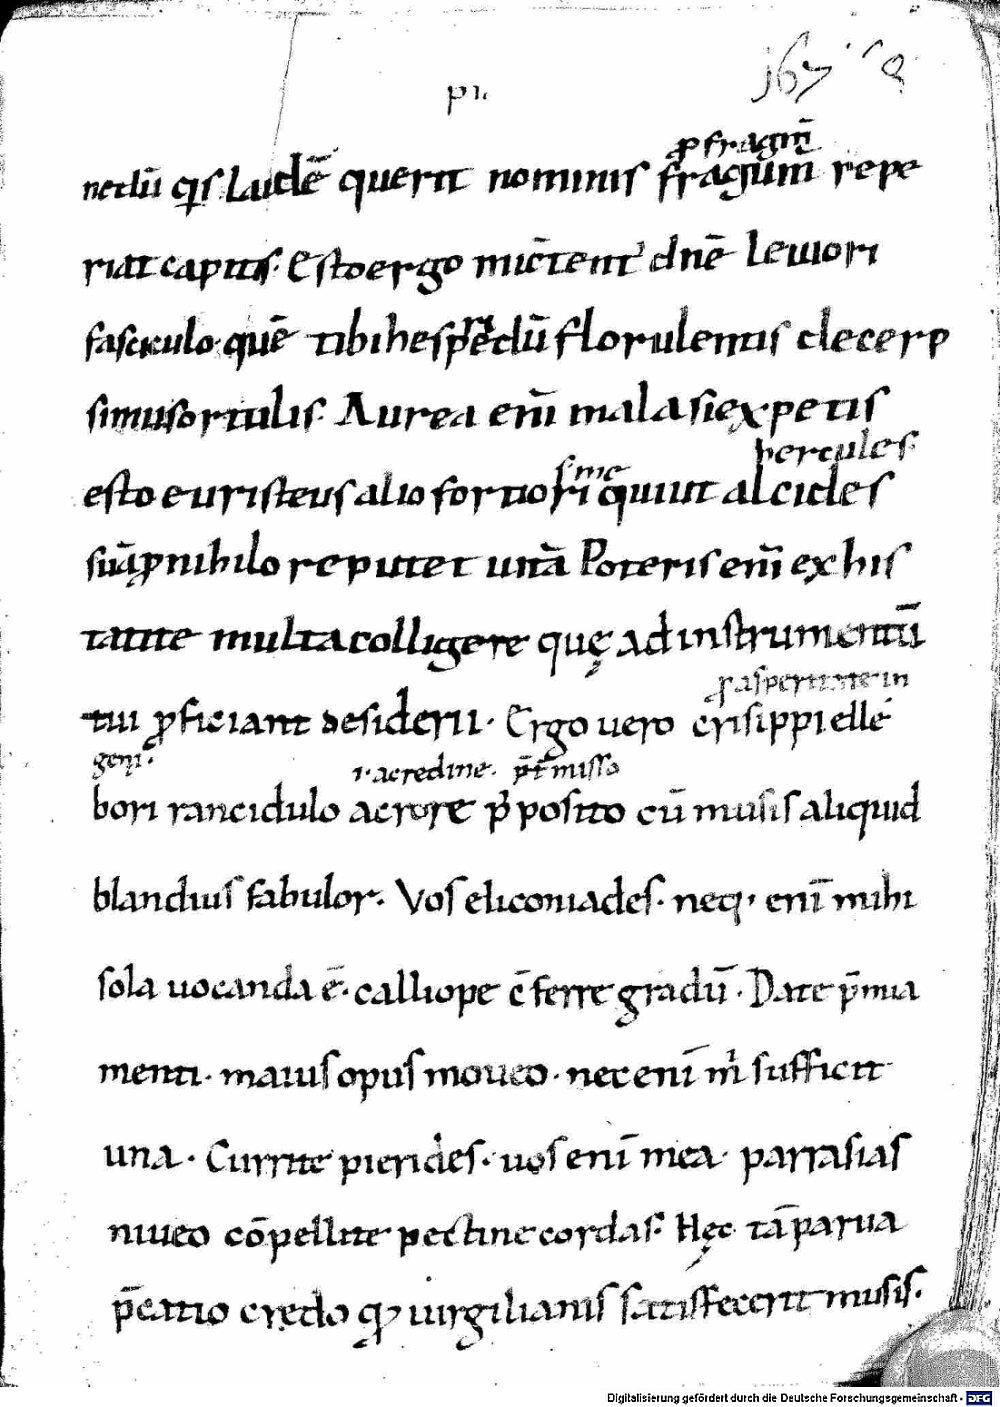 167
p̄fragm̄
nedū q̇s laudē querit nominis fragum̄ repe
riat capitis. Esto ergo mictent dnē leuiori
fasciculo. quē tibi hesperedū florulentis decerp
simus ortulis. Aurea enī mala si expetis
hercules.
s. me
esto euristeus alio fortiori quiut alcides
suā ꝓ nihilo reputet unā. Poteris enī ex his
tante multa colligere quę ad instrumentū
ꝓ asperitate in
tui ꝓficiant desiderii. Ergo uero crisippi elle
genī.
ı. acredine. p̄t̄misso
bori rancidulo acrore p̄posito cū musis aliquid
blandius fabulor. Vos eliconiades. neq; enī mihi
sola uocanda ē. calliope c̄ferre gradū. Date p̄mia
menti. maius opus moueo. nec enī m̄ sufficit
una. Currite pierides. uos enī mea parrasias
niueo cōpellite pectine cordas. Hęc tā parua
p̄catio credo qd uirgilianis satisfecerit musis.
Digitalisierung gefördert durch die Deutsche Forschungsgemeinschaft - DFG